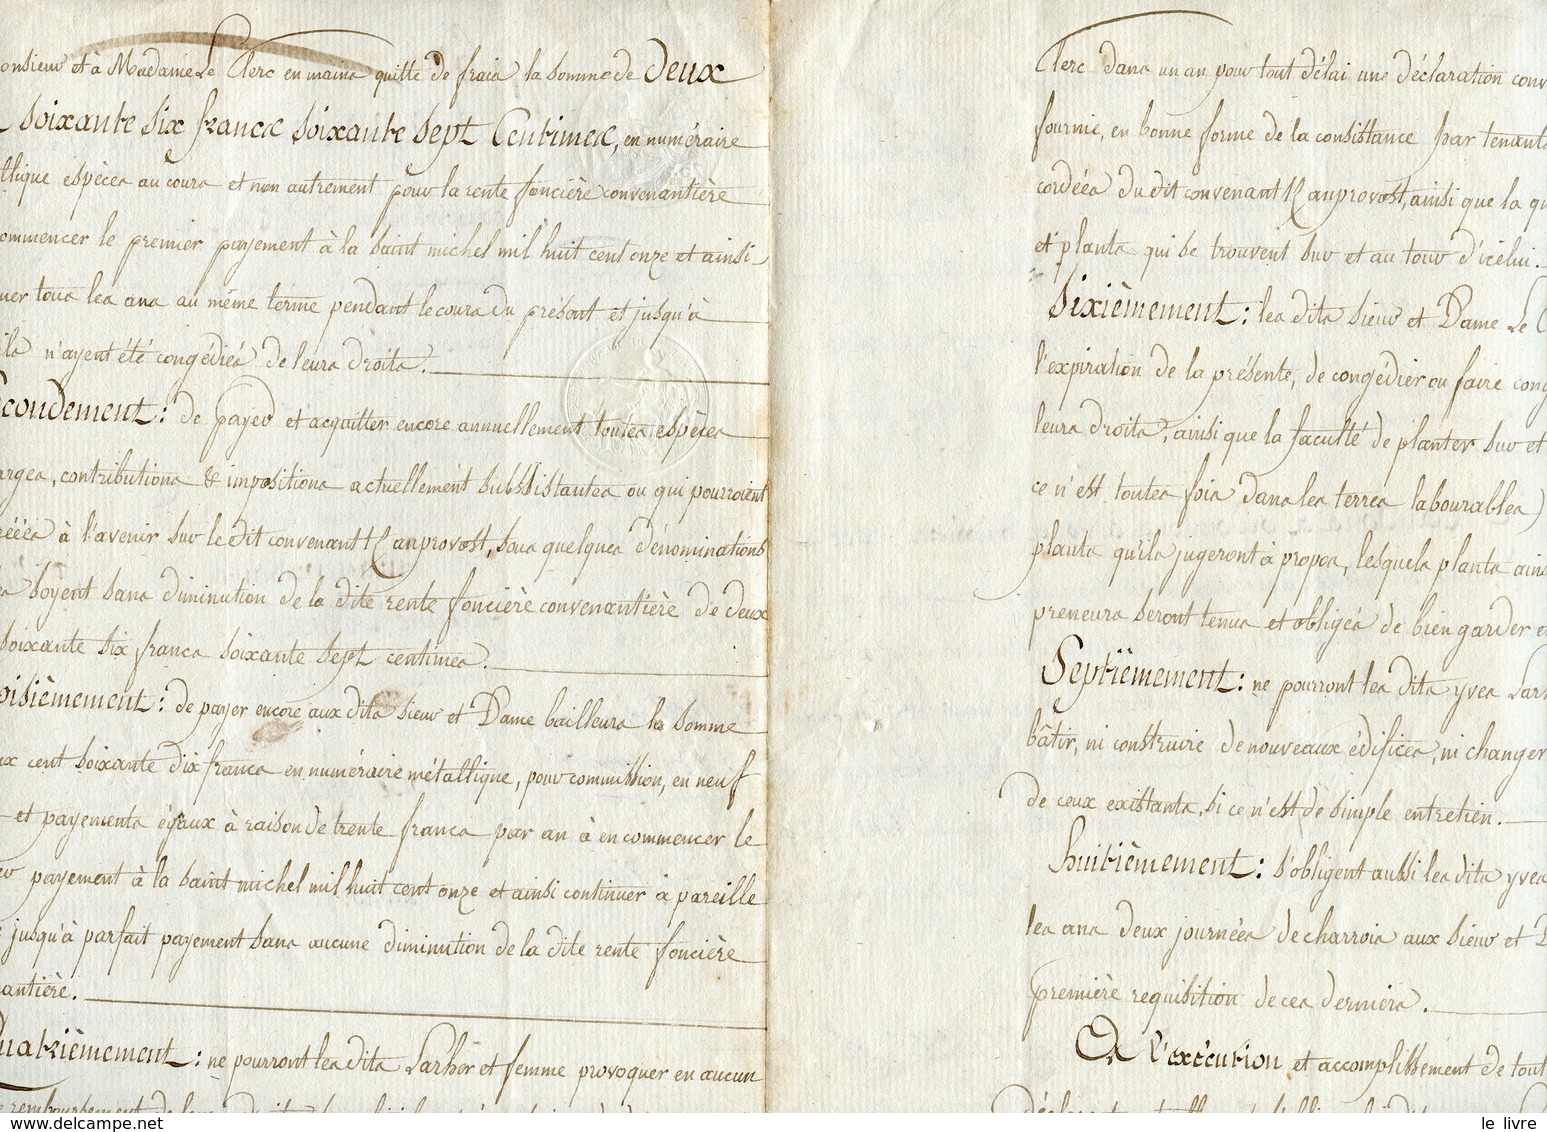 onsieur et à Madame Le Clerc en mains quitte de frais la somme de deux
soixante six francs soixante sept Centimes, en numéraire
llique espèces au cours et non autrement pour la rente foncière convenantière
ommencer le premier payement à la saint michel mil huit cent onze et ainsi
uer tous les ans au même terme pendant le cours du présent et jusqu'à
ils n'ayent été congédiés de leurs droits.
econdement : de payer et acquitter encore annuellement toutes espèces
arges, contributions & impositions actuellement subsistantes ou qui pourroient
réées à l'avenir sur le dit convenant Kanprovost, sous quelques dénominations
s soyent sans diminution de la dite rente foncière convenantière de deux
soixante six francs soixante sept centimes.
oisièmement : de payer encore aux dits sieur et Dame bailleurs la somme
ux cent soixante dix francs en numéraire métallique, pour commission, en neuf
et payements égaux à raison de trente francs par an à en commencer le
er payement à la saint michel mil huit cent onze et ainsi continuer à pareille
jusqu'à parfait payement sans aucune diminution de la dite rente foncière
antière.
uatrièmement : ne pourront les dits Larhér et femme provoquer en aucun
remboursement de leurs droits
Clerc dans un an pour tout délai une déclaration conv
fournie, en bonne forme de la consistance par tenants
cordées du dit convenant Kanprovost, ainsi que la qu
et plants qui se trouvent sur et au tour d'icelui.
Sixièmement : les dits sieur et Dame Le C
l'expiration de la présente, de congédier ou faire cong
leurs droits, ainsi que la faculté de planter sur et
ce n'est toutes fois dans les terres labourables)
plants qu'ils jugeront à propos, lesquels plants ains
preneurs seront tenus et obligés de bien garder e
Septièmement : ne pourront les dits yves Lar
bâtir, ni construire de nouveaux édifices, ni changer
de ceux existants, si ce n'est de simple entretien.
huitièmement : s'obligent aussi les dits yves
les ans deux journées de charrois aux sieur et D
première requisition de ces derniers.
A l'exécution et accomplissement de tout
le livre
www.delcampe.net